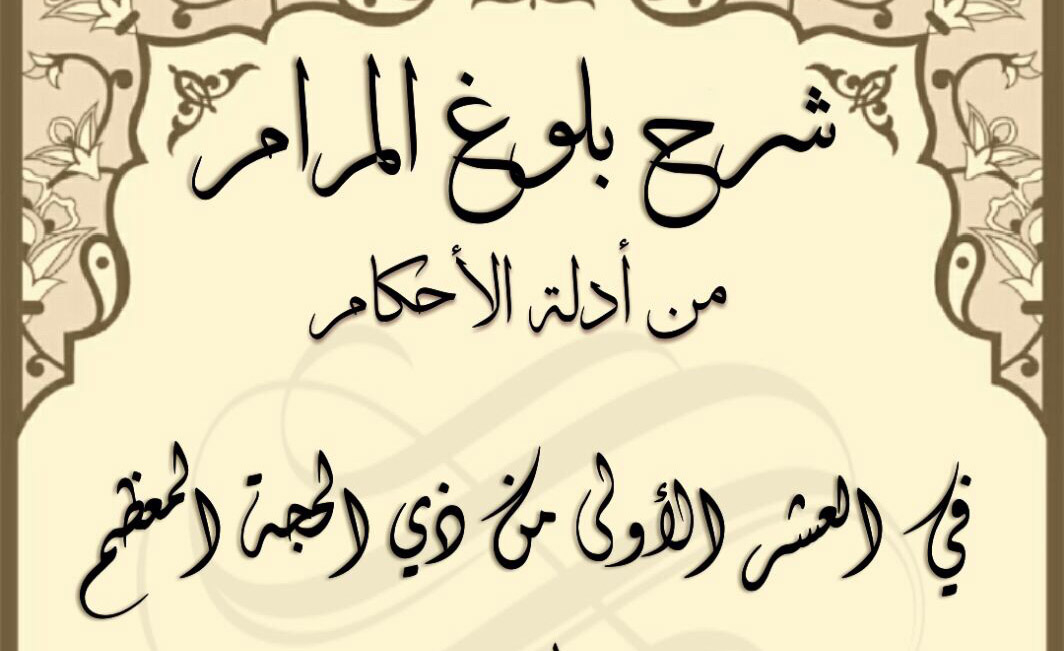 شرح بلوغ المرام
من أدلة الأحكام
في العشر الأولى من ذي الحجة المعظم